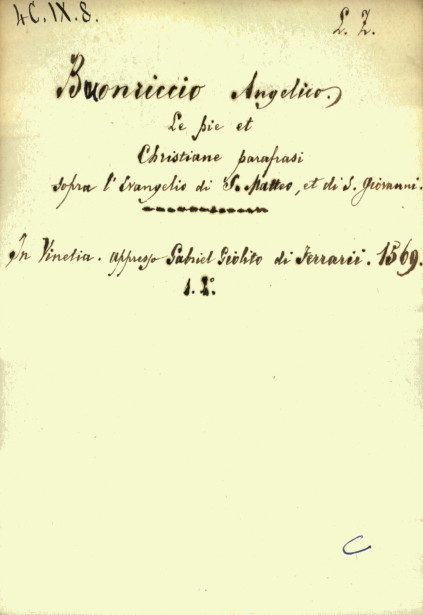 4C.IX.8.
L. Z.
Buonriccio Angelico.
Le pie et
Christiane parafrasi
sopra l'Evangelio di S. Matteo, et di S. Giovanni.
In Vinetia. appresso Gabriel Giolito di Ferrarii. 1569.
C